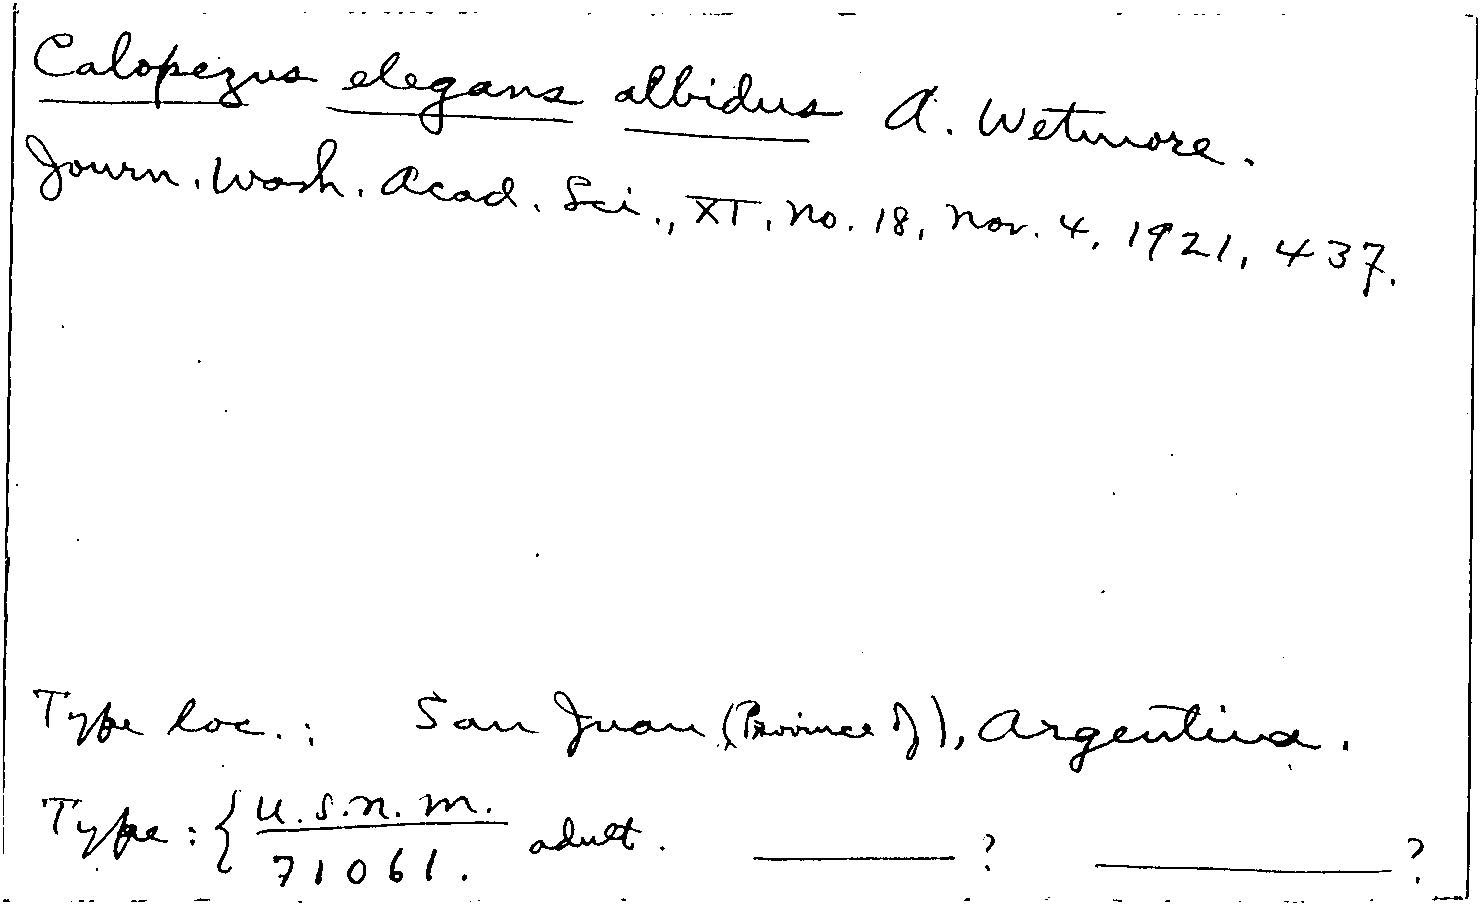 Calopezus elegans albidus A. Wetmore.
Journ. Wash. Acad. Sci., XI, no. 18, Nov. 4, 1921, 437.
Type loc.: San Juan (Province of), Argentina.
Type: { U.S.N.M. adult. ____ ? ____ ?
71061.